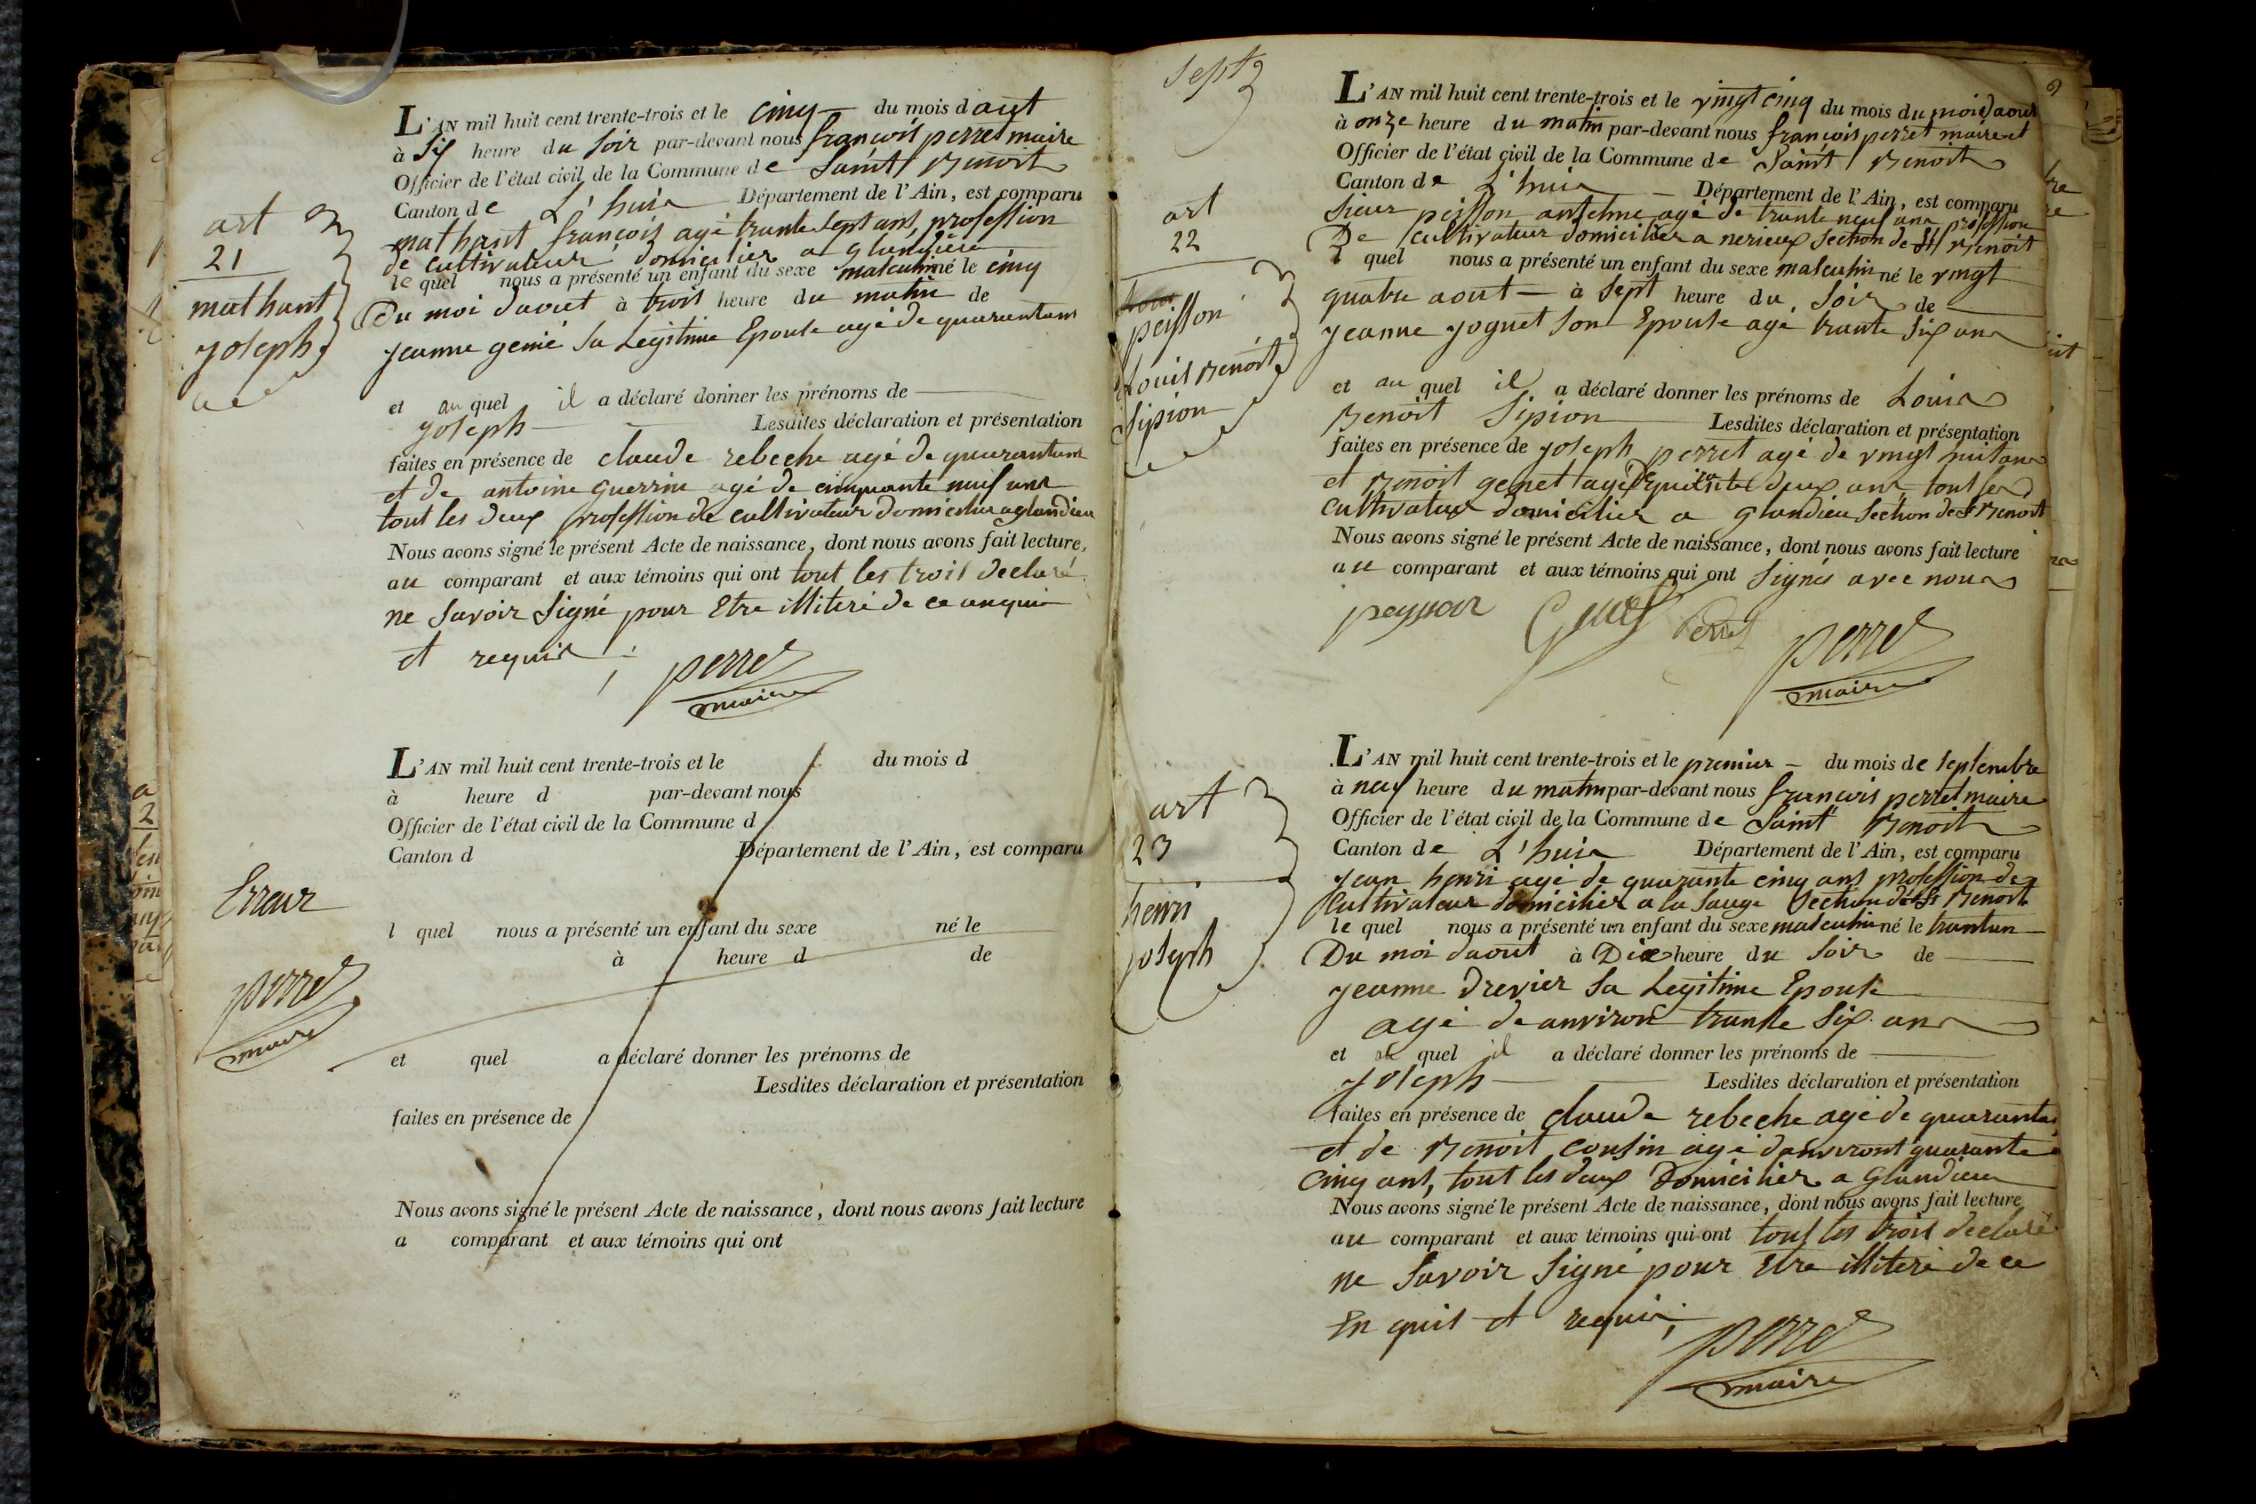 art
21
mathant
joseph
L'AN mil huit cent trente-trois et le cinq du mois d aut
à Six heure du Soir par-devant nous françois perret maire
Officier de l'état civil de la Commune de Saint Benoit
Canton de L'huis Département de l'Ain, est comparu
mathant françois agé trante Sept ans, profession
de cultivateur domicilier a glandieu
le quel nous a présenté un enfant du sexe masculin né le cinq
Du moi daout à trois heure du matin de
jeanne genié Sa Legitime Epouse agé de quarantans
et au quel il a déclaré donner les prénoms de
joseph Lesdites déclaration et présentation
faites en présence de claude rebeche agé de quarantans
et de antoine guerrin agé de cinquante neuf ans
tout les deux profession de cultivateur domicilier a glandieu
Nous avons signé le présent Acte de naissance, dont nous avons fait lecture,
au comparant et aux témoins qui ont tout les trois declaré
ne Savoir Signé pour Etre illiteré de ce anquis
et requis ;
perret
maire
Erreur
perret
maire
L'AN mil huit cent trente-trois et le du mois d
à heure d par-devant nous
Officier de l'état civil de la Commune d
Canton d Département de l'Ain, est comparu
l quel nous a présenté un enfant du sexe né le
à heure d de
et quel a déclaré donner les prénoms de
Lesdites déclaration et présentation
faites en présence de
Nous avons signé le présent Acte de naissance, dont nous avons fait lecture
a comparant et aux témoins qui ont
Sept
art
22
peisson
Louis Benoit
Sipion
L'AN mil huit cent trente-trois et le vingt cinq du mois du mois daout
à onze heure du matin par-devant nous françois perret maire et
Officier de l'état civil de la Commune de Saint Benoit
Canton de L'huis Département de l'Ain, est comparu
Sieur peisson antelme agé de trante neuf ans profession
De cultivateur domicilier a nerieux Section de St Benoit
l quel nous a présenté un enfant du sexe masculin né le vingt
quatre aout à Sept heure du Soir de
jeanne joguet Son Epouse agé trante Six ans
et au quel il a déclaré donner les prénoms de Louis
Benoit Sipion Lesdites déclaration et présentation
faites en présence de joseph perret agé de vingt huit ans
et Benoit genet agé deux ans tout les
cultivateur domicilier a glandieu Section de St Benoit
Nous avons signé le présent Acte de naissance, dont nous avons fait lecture
au comparant et aux témoins qui ont Signés avec nous
Perret
perret
maire
art
23
henri
joseph
L'AN mil huit cent trente-trois et le premier du mois de Septembre
à neuf heure du matin par-devant nous françois perret maire
Officier de l'état civil de la Commune de Saint Benoit
Canton de L'huis Département de l'Ain, est comparu
jean henri agé de quarante cinq ans profession de
Cultivateur domicilier a la Sauge Section de St Benoit
le quel nous a présenté un enfant du sexe masculin né le trantun
Du moi daout à Dix heure du Soir de
jeanne Drevier Sa Legitime Epouse
agé de anviron trante Six ans
et au quel il a déclaré donner les prénoms de
joseph Lesdites déclaration et présentation
faites en présence de claude rebeche agé de quarante
et de Benoit cousin agé danviront quarante
cinq ans, tout les deux Domicilier a Glandieu
Nous avons signé le présent Acte de naissance, dont nous avons fait lecture
au comparant et aux témoins qui ont tous les trois declaré
ne Savoir Signé pour Etre illiteré de ce
En quis et requis ;
perret
maire